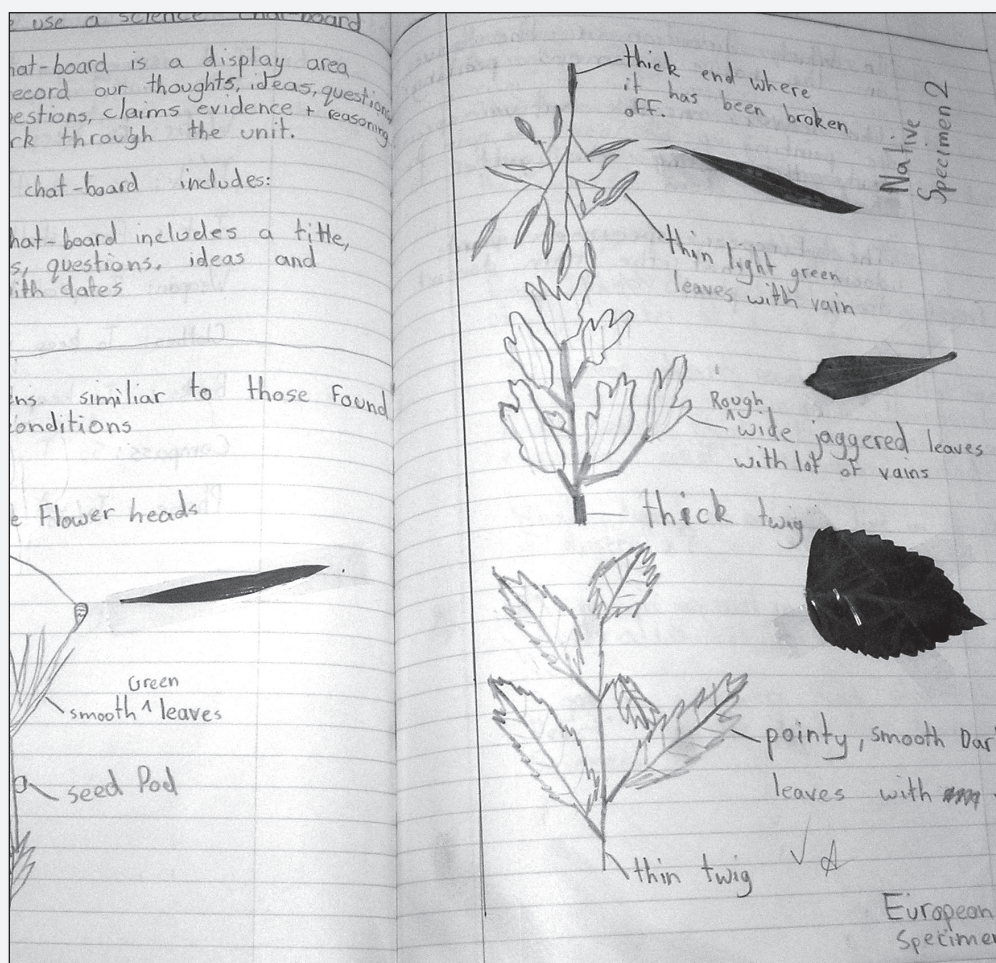 use a science chat-board
hat-board is a display area
ecord our thoughts, ideas, question
estions, claims evidence + reasoning
rk through the unit.
chat-board includes:
hat-board includes a title,
s, questions, ideas and
ith dates
ns similiar to those found
onditions
e Flower heads
Green
smooth ^ leaves
seed Pod
thick end where
it has been broken
off.
Native
Specimen 2
thin light green
leaves with vain
Rough
^ wide jaggered leaves
with lot of vains
thick twig
pointy, smooth Dar
leaves with
thin twig
European
Specime